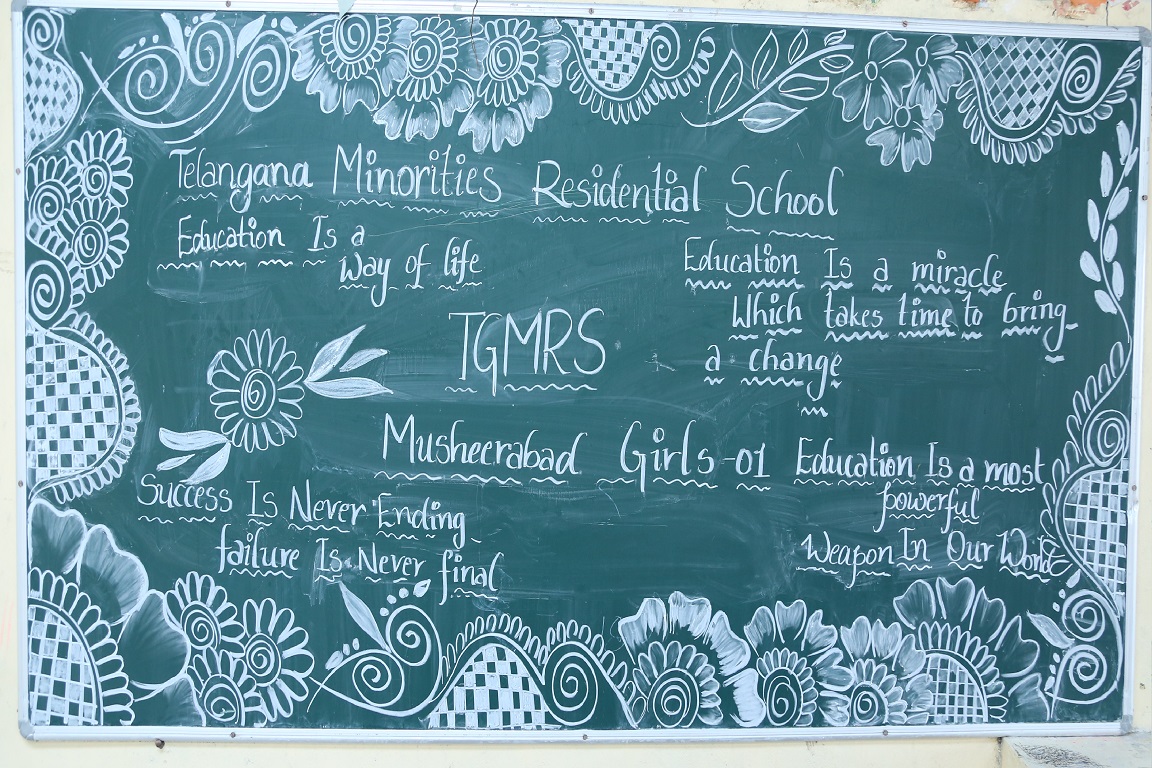 Telangana Minorities Residential School
Education Is a
way of life
Education Is a miracle
Which takes time to bring
a change
TGMRS
Musheerabad Girls -01
Education Is a most
powerful
Weapon In Our World
Success Is Never Ending
failure Is Never final